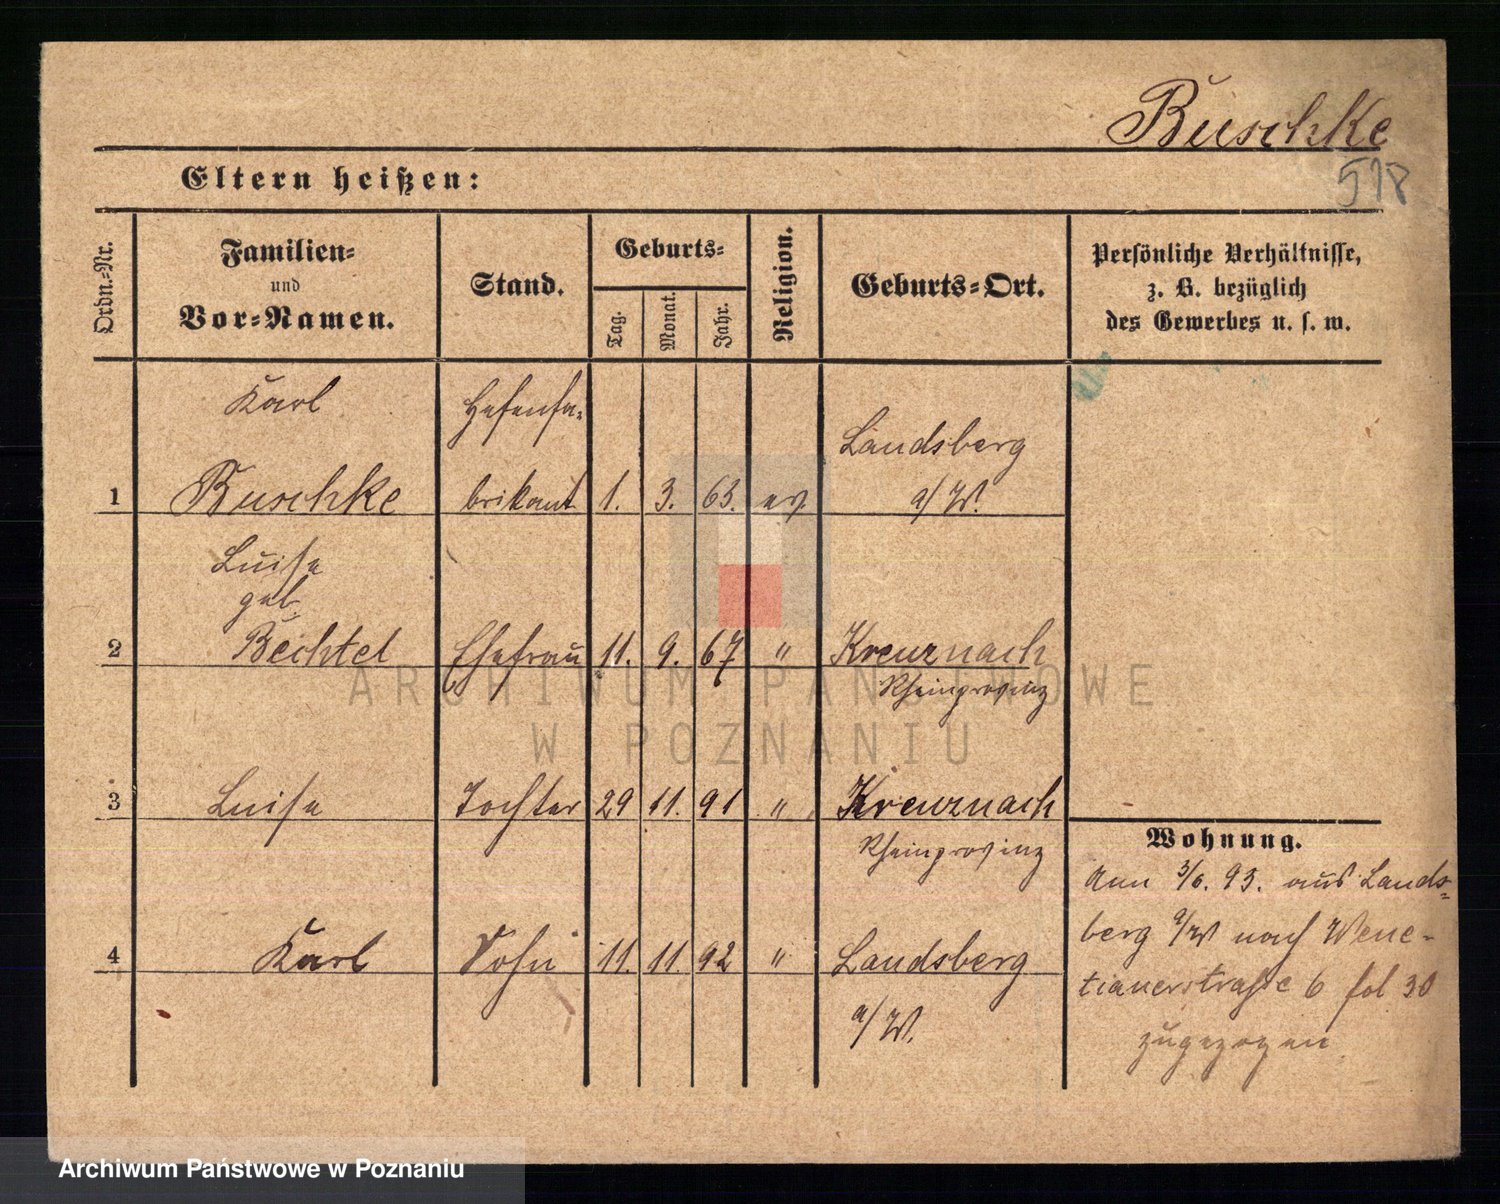 Buschke
518
Eltern heißen:
Ordn.-Nr.
Familien-
und
Vor-Namen.
Stand.
Geburts-
Tag.
Monat.
Jahr.
Religion.
Geburts-Ort.
Persönliche Verhältnisse,
z. B. bezüglich
des Gewerbes u. s. w.
Karl
Hefenfa-
Landsberg
1 Buschke brikant 1. 3. 63. ev. a/W.
Luise
geb.
2 Bechtel Ehefrau 11. 9. 67 " Kreuznach
Rheinprovinz
ARCHIWUM PAŃSTWOWE
W POZNANIU
3 Luise Tochter 29 11. 91 " Kreuznach
Rheinprovinz
Wohnung.
Am 3/6. 93. aus Lands-
berg a/W nach Vene-
4 Karl Sohn 11. 11. 92 " Landsberg
tianerstraße 6 fol 30
a/W.
zugezogen
Archiwum Państwowe w Poznaniu